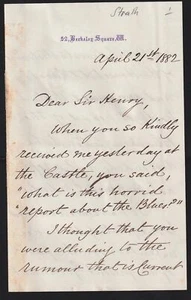 Strath 1
32, Berkeley Square, W.
April 21st 1882
Dear Sir Henry,
When you so kindly
received me yesterday at
the Castle, you said,
"what is this horrid
"report about the Blues?"
I thought that you
were alluding to the
rumour that is current